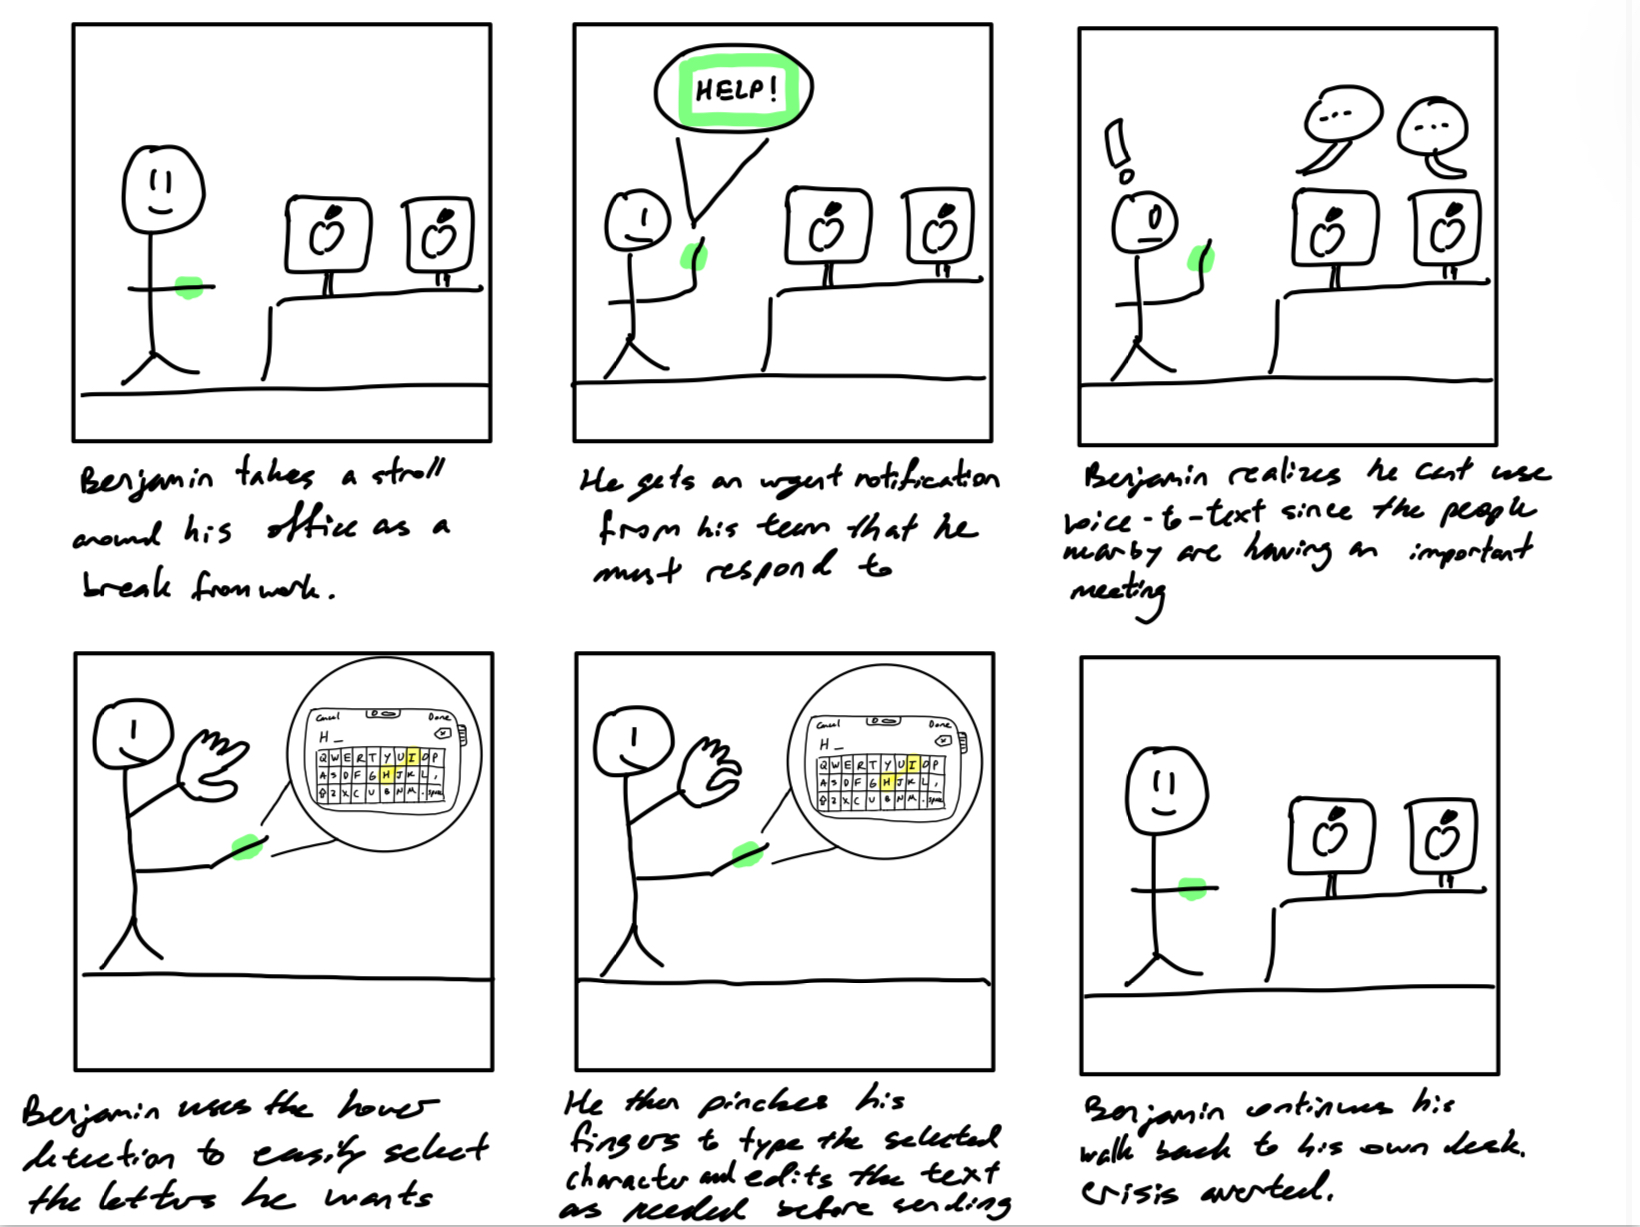 HELP!
Benjamin takes a stroll
around his office as a
break from work.
He gets an urgent notification
from his team that he
must respond to
Benjamin realizes he cant use
voice-to-text since the people
nearby are having an important
meeting
Cancel Done
H_
Q W E R T Y U I O P
A S D F G H J K L ,
Z X C V B N M . space
Cancel Done
H_
Q W E R T Y U I O P
A S D F G H J K L ,
Z X C V B N M . space
Benjamin uses the hover
detection to easily select
the letters he wants
He then pinches his
fingers to type the selected
character and edits the text
as needed before sending
Benjamin continues his
walk back to his own desk.
Crisis averted.